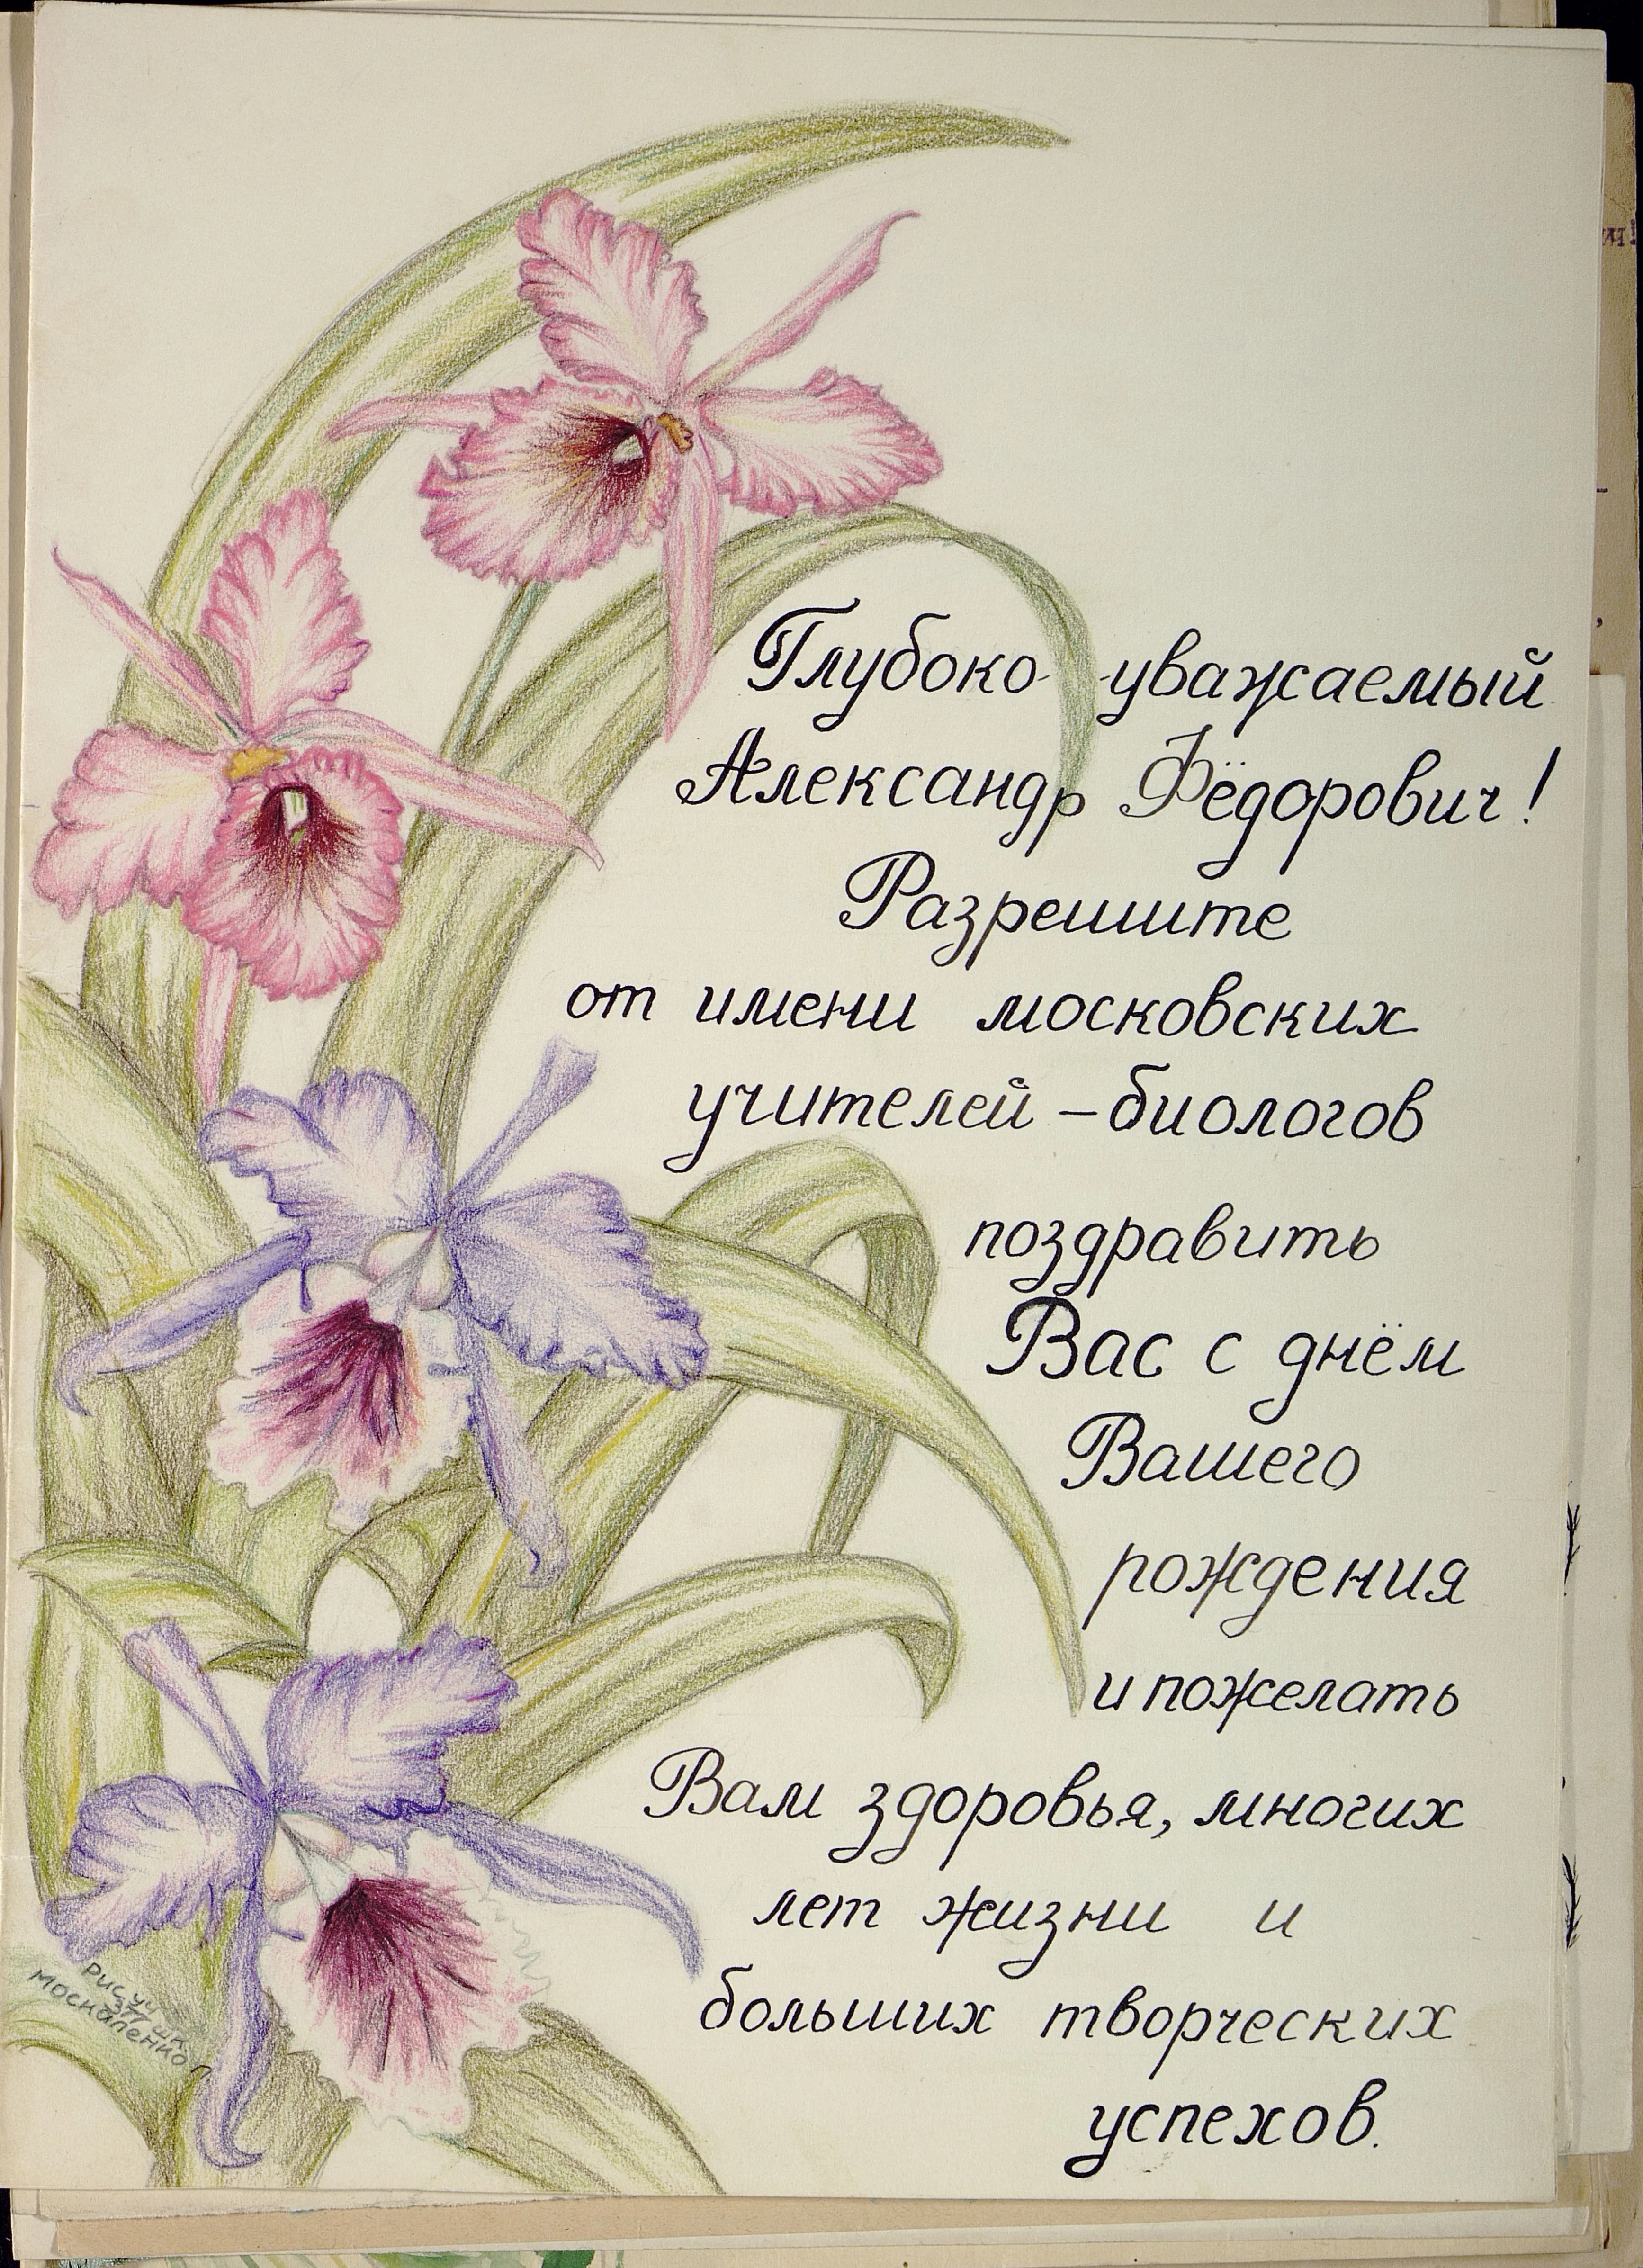 Глубоко- -уважаемый
Александр Фёдорович!
Разрешите
от имени московских
учителей – биологов
поздравить
Вас с днём
Вашего
рождения
и пожелать
Вам здоровья, многих
лет жизни и
больших творческих
успехов.
Москаленко